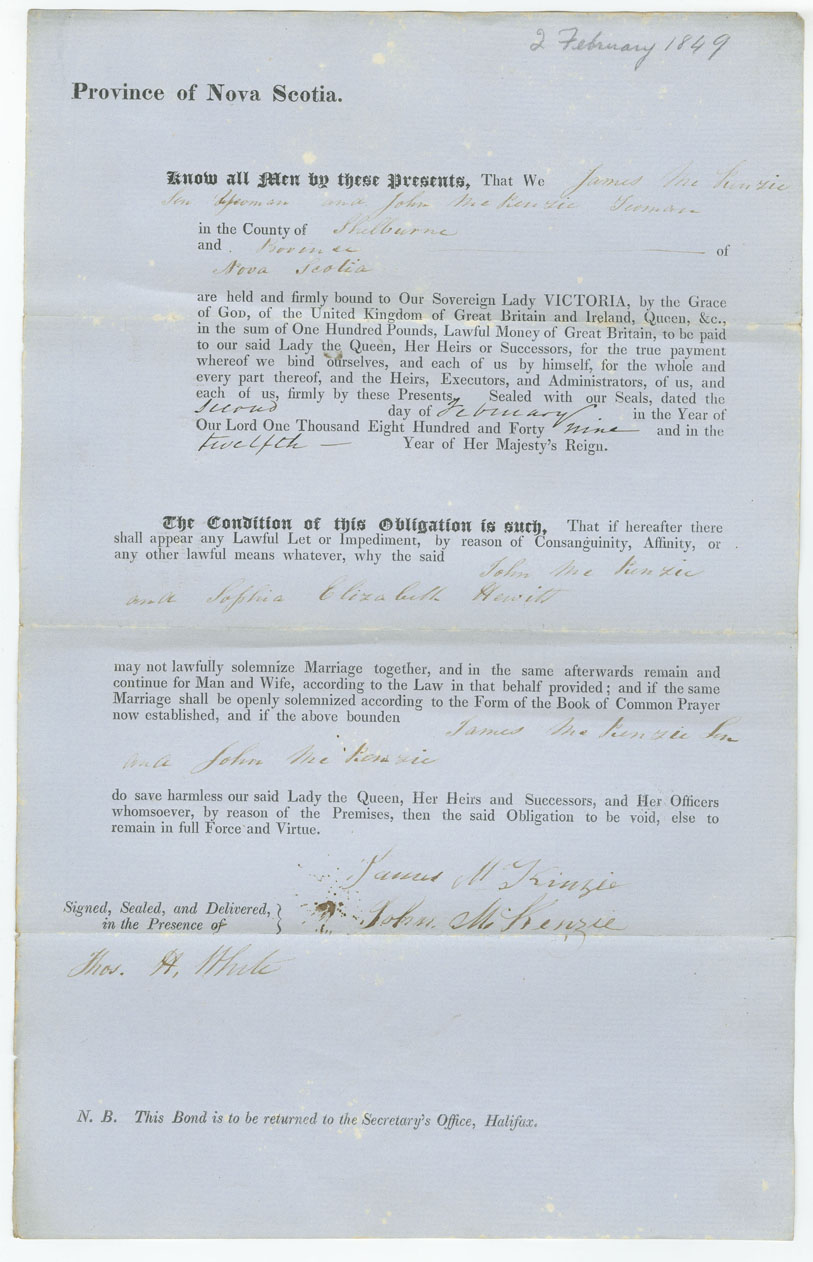 2 February 1849
Province of Nova Scotia.
Know all Men by these Presents, That We James McKenzie
Sen Yeoman and John McKenzie Yeoman
in the County of Shelburne
and Province of
Nova Scotia
are held and firmly bound to Our Sovereign Lady VICTORIA, by the Grace
of GOD, of the United Kingdom of Great Britain and Ireland, Queen, &c.,
in the sum of One Hundred Pounds, Lawful Money of Great Britain, to be paid
to our said Lady the Queen, Her Heirs or Successors, for the true payment
whereof we bind ourselves, and each of us by himself, for the whole and
every part thereof, and the Heirs, Executors, and Administrators, of us, and
each of us, firmly by these Presents. Sealed with our Seals, dated the
second day of February in the Year of
Our Lord One Thousand Eight Hundred and Forty nine and in the
twelfth — Year of Her Majesty's Reign.
The Condition of this Obligation is such, That if hereafter there
shall appear any Lawful Let or Impediment, by reason of Consanguinity, Affinity, or
any other lawful means whatever, why the said
John McKenzie
and Sophia Elizabeth Hewitt
may not lawfully solemnize Marriage together, and in the same afterwards remain and
continue for Man and Wife, according to the Law in that behalf provided; and if the same
Marriage shall be openly solemnized according to the Form of the Book of Common Prayer
now established, and if the above bounden
James McKenzie Sen
and John McKenzie
do save harmless our said Lady the Queen, Her Heirs and Successors, and Her Officers
whomsoever, by reason of the Premises, then the said Obligation to be void, else to
remain in full Force and Virtue.
James McKinzie
Signed, Sealed, and Delivered,
in the Presence of
John McKenzie
Thos. H. White
N. B. This Bond is to be returned to the Secretary's Office, Halifax.